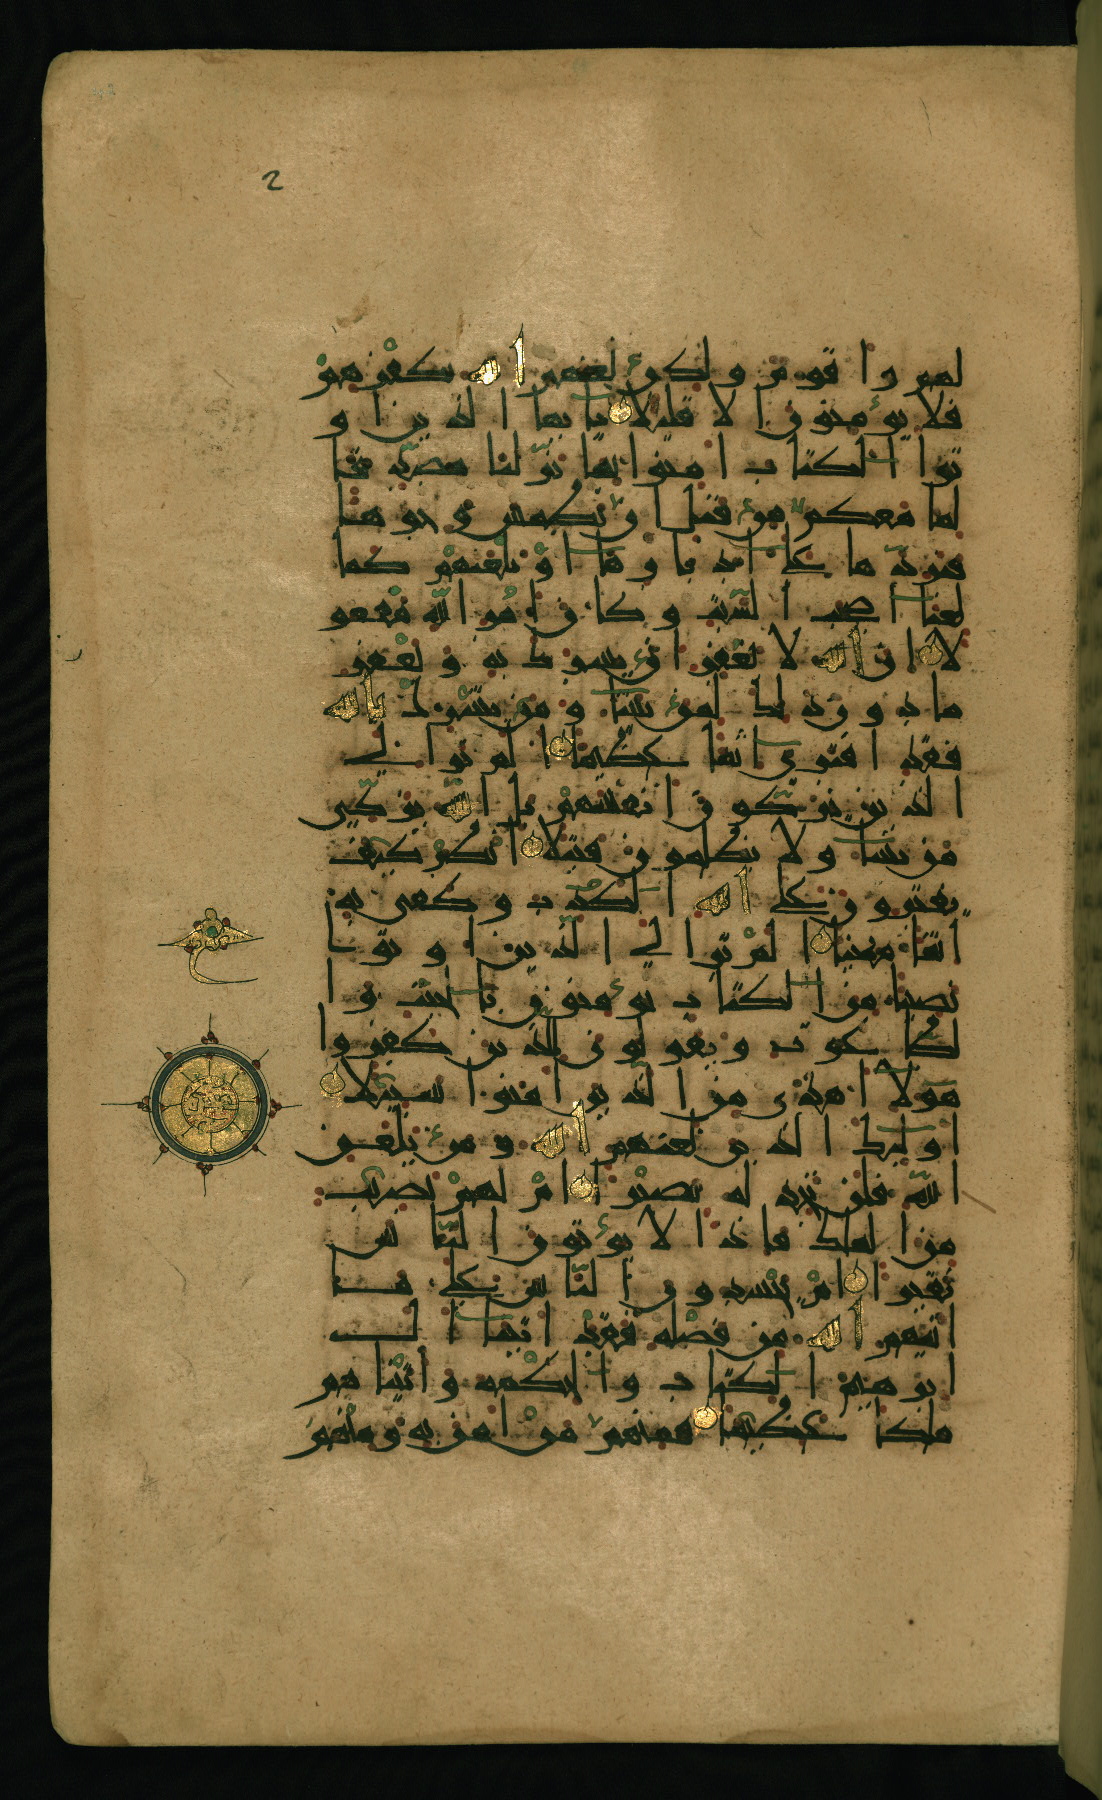 2
لهم وا قوم ولكن لعنهم الله بكفرهم
فلا يؤمنون الا قليلا يايها الذين او
توا الكتاب امنوا بما نزلنا مصدقا
لما معكم من قبل ان نطمس وجوها
فنردها على ادبارها او نلعنهم كما
لعنا اصحب السبت وكان امر الله مفعو
لا ان الله لا يغفر ان يشرك به ويغفر
ما دون ذلك لمن يشا ومن يشرك بالله
فقد افترى اثما عظيما الم تر الي
الذين يزكون انفسهم بل الله يزكي
من يشا ولا يظلمون فتيلا انظر كيف
يفترون على الله الكذب وكفى به
اثما مبينا الم تر الي الذين اوتوا
نصيبا من الكتاب يؤمنون بالجبت وا
لطاغوت ويقولون للذين كفروا
هؤلا اهدى من الذين امنوا سبيلا
اولئك الذين لعنهم الله ومن يلعن
الله فلن تجد له نصيرا ام لهم نصيب
من الملك فاذا لا يؤتون الناس
نقيرا ام يحسدون الناس على ما
اتيهم الله من فضله فقد اتينا ال
ابرهيم الكتاب والحكمه واتيناهم
ملكا عظيما فمنهم من امن به ومنهم